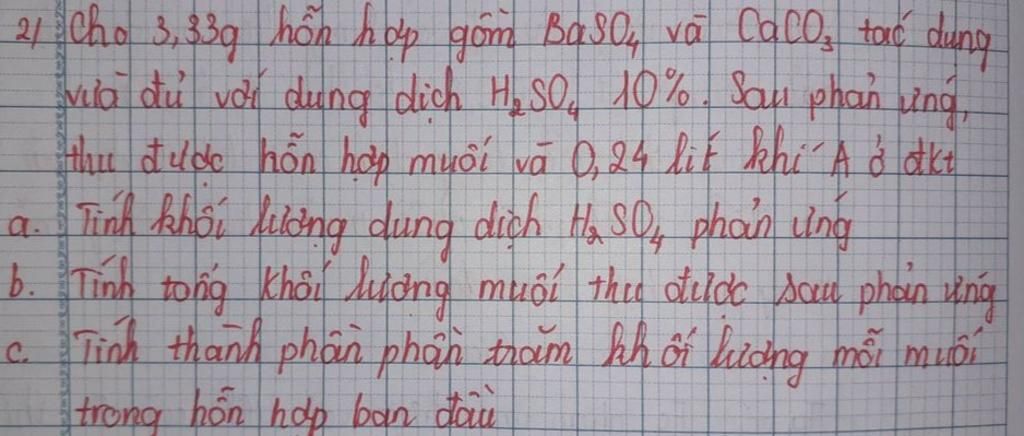 2/ Cho 3,33g hỗn hợp gồm BaSO₄ và CaCO₃ tác dụng
vừa đủ với dung dịch H₂SO₄ 10%. Sau phản ứng,
thu được hỗn hợp muối và 0,24 lít khí A ở đkt
a. Tính khối lượng dung dịch H₂SO₄ phản ứng
b. Tính tổng khối lượng muối thu được sau phản ứng
c. Tính thành phần phần trăm khối lượng mỗi muối
trong hỗn hợp ban đầu